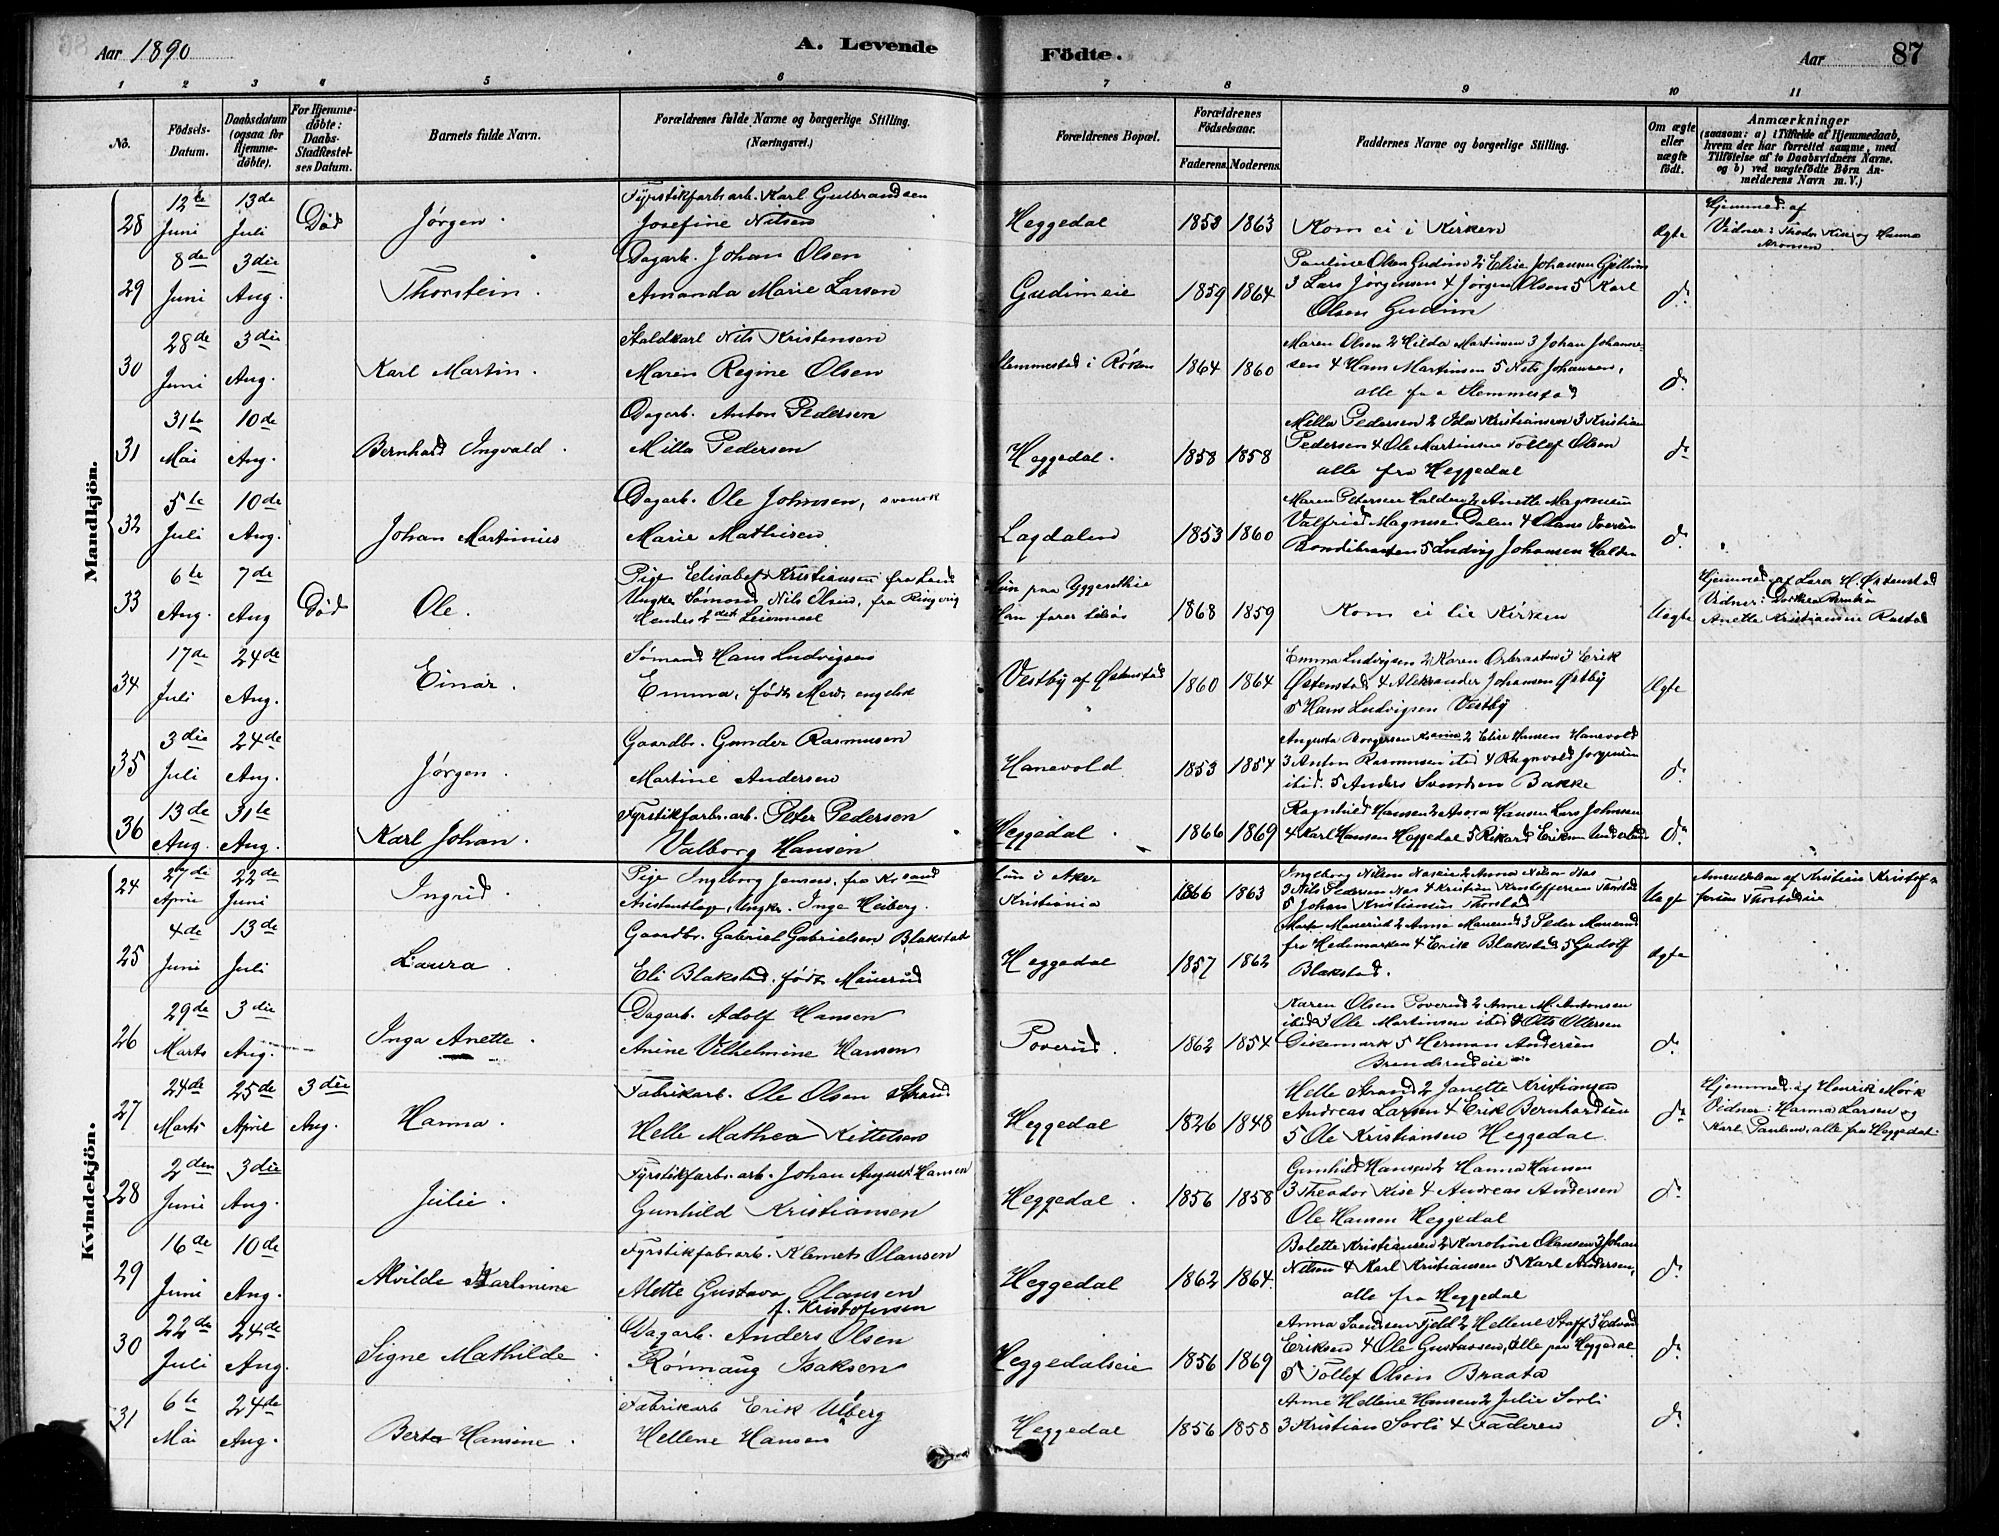 Aar 1890
A. Levende
Födte.
Aar
87
1 2 3 4 5 6 7 8 9 10 11
No.
Födsels-
Datum.
Daabsdatum
(ogsaa for
Hjemme-
döbte).
For Hjemme-
döbte:
Daabs-
Stadfæstel-
ses Datum.
Barnets fulde Navn.
Forældrenes fulde Navne og borgerlige Stilling.
(Næringsvei.)
Forældrenes Bopæl.
Forældrenes
Födselsaar.
Faderens. Moderens.
Faddernes Navne og borgerlige Stilling.
Om ægte
eller
uægte
födt.
Anmærkninger
(saasom: a) i Tilfælde af Hjemmedaab,
hvem der har forrettet samme, med
Tilföielse af to Daabsvidners Navne.
og b) ved uægtefödte Börn An-
melderens Navn m. V.)
Mandkjön.
28 12te Juni 13de Juli Död Jørgen.
Fyrstikfarb. arb. Karl Gulbrandsen
Josefine Nilsen
Heggedal 1858 1863 Kom ei i Kirken Ægte
Hjemmed. af
Vidner: Theodor Kise og Hanna
Aronsen
29 8de Juni 3die Aug. Thorstein.
Dagarb. Johan Olsen
Amanda Marie Larsen
Gudimeie 1859 1864
Pauline Olsen Gudim 2 Elise Johansen Gjellum
3 Lars Jørgensen 4 Jørgen Olsen 5 Karl
Olsen Gudim
do
30 28de Juni 3die Aug. Karl Martin.
Staldkarl Nils Kristensen
Maren Regine Olsen
Slemmestad i Røken 1864 1860
Maren Olsen 2 Hilda Martinsen 3 Johan Johanne-
sen 4 Hans Martinsen 5 Nils Johansen,
alle fra Slemmestad
do
31 31te Mai 10de Aug. Bernhard Ingvald.
Dagarb. Anton Pedersen
Milla Pedersen
Heggedal. 1858 1858
Milla Pedersen 2 Ida Kristiansen 3 Kristian
Pedersen 4 Ole Martinsen Tollef Olsen
alle fra Heggedal
do
32 5te Juli 10de Aug. Johan Martinius
Dagarb. Ole Johnsen, svensk
Marie Mathisen
Lagdalen 1853 1860
Maren Petersen Halden 2 Anette Magnusen
Valfrid Magnusen Dalen 4 Olaus Iversen
Bondibraaten 5 Ludvig Johansen Halden
do
33 6te Aug. 7de Aug Död Ole.
Pige Elisabet Kristiansen fra Land
Ungkr Sømand Nils Olsen, fra Ringerig
Hendes 2det Leiermaal
Hun paa Yggesethie
Han farer tilsøs
1868 1859 Kom ei til Kirken Uægte
Hjemmed. af Lars H. Østenstad
Vidner: Dorthea Berntsen
Anette Kristiansen Rustad
34 17de Juli 24de Aug. Einar.
Sømand Hans Ludvigsen
Emma, født engelsk
Vestby af Østenstad 1860 1864
Emma Ludvigsen 2 Karen Orebraaten 3 Erik
Østenstad 4 Aleksander Johansen Østby
5 Hans Ludvigsen Vestby
Ægte
35 3die Juli 24de Aug. Jørgen.
Gaardbr. Gunder Rasmusen
Martine Andersen
Hanevold 1853 1854
Augusta Borgersen 2 Elise Hansen Hanevold
3 Anton Rasmusen ibid 4 Ragnvald Jørgensen
ibid. 5 Anders Svendsen Bakke
do
36 13de Aug. 31te Aug. Karl Johan.
Fyrstikfarb. arb. Peter Pederson
Valborg Hansen
Heggedal. 1866 1869
Ragnhild Hansen 2 Hansen Lars Johnsen
4 Karl Hansen Heggedal 5 Rikard Eriksen
do
Kvindekjön.
24 27de April 22de Juni Ingrid.
Pige Ingeborg Jensen, fra Kr.sand
Assistentlæge, Ungkr. Inge Heiberg.
Hun i Aker
Kristiania
1866 1863
Ingeborg Nilsen 2 Anna Nilsen Næs
3 Nils Pedersen Næs 4 Kristian Kristoffersen Thorstad
5 Johan Kristiansen Thorstad
Uægte
Anmeldelse af Kristian Kristof-
fersen Thorstadeie
25 4de Juni 13de Juli Laura.
Gaardbr. Gabriel Gabrielsen Blakstad
Eli Blakstad, født Mauerud
Heggedal 1857 1862
Marte Mauerud 2 Anne Mauerud 3 Peder Mauerud
fra Hedemarken 4 Erik Blakstad 5 Gudolf
Blakstad.
Ægte
26 29de Marts 3die Aug. Inga Anette.
Dagarb. Adolf Hansen
Anine Vilhelmine Hansen
Poverud. 1862 1854
Karen Olsen Poverud 2 Anne M. Antonsen
ibid 3 Ole Martinsen ibid 4 Otto Ottersen
Dikemark 5 Herman Andersen
Brendsrudeie
do
27 24de Marts 25de April 3die Aug. Hanna.
Fabrikarb. Ole Olsen Strand
Helle Mathea Kittelsen
Heggedal 1826 1848
Helle Strand 2 Janette Kristiansen
Andreas Larsen 4 Erik Bernhardsen
5 Ole Kristiansen Heggedal.
do
Hjemmed. af Henrik Mörk
Vidner: Hanna Larsen og
Karl Paulsen, alle fra Heggedal.
28 2den Juni 3die Aug. Julie.
Fyrstikfarb. arb. Johan August Hansen
Gunhild Kristiansen
Heggedal. 1856 1858
Gunhild Hansen 2 Hanna Hansen
3 Theodor Kise 4 Andreas Andersen
Ole Hansen Heggedal
do
29 16de Juni 10de Aug. Alvilde Karlmine
Fyrstikfab. arb. Klemet Olausen
Mette Gustava Olausen
f. Kristofersen
Heggedal 1862 1864
Bolette Kristiansen 2 Karoline Olausen 3 Johan
Nilsen 4 Karl Kristiansen 5 Karl Andersen,
alle fra Heggedal
do
30 22de Juli 24de Aug. Signe Mathilde.
Dagarb. Anders Olsen
Rønnaug Isaksen
Heggedalseie 1856 1869
Anna Svendsen Fjeld 2 Hellene Staff 3 Edvard
Eriksen 4 Ole Gustavsen, alle paa Heggedal
5 Tollef Olsen Braata
do
31 6te Mai 24de Aug. Berta Hansine.
Fabrikarb Erik Ulberg
Hellene Hansen
Heggedal 1856 1858
Anne Hellene Hansen 2 Julie Sorli
3 Kristian Sorli 4 Faderen
do